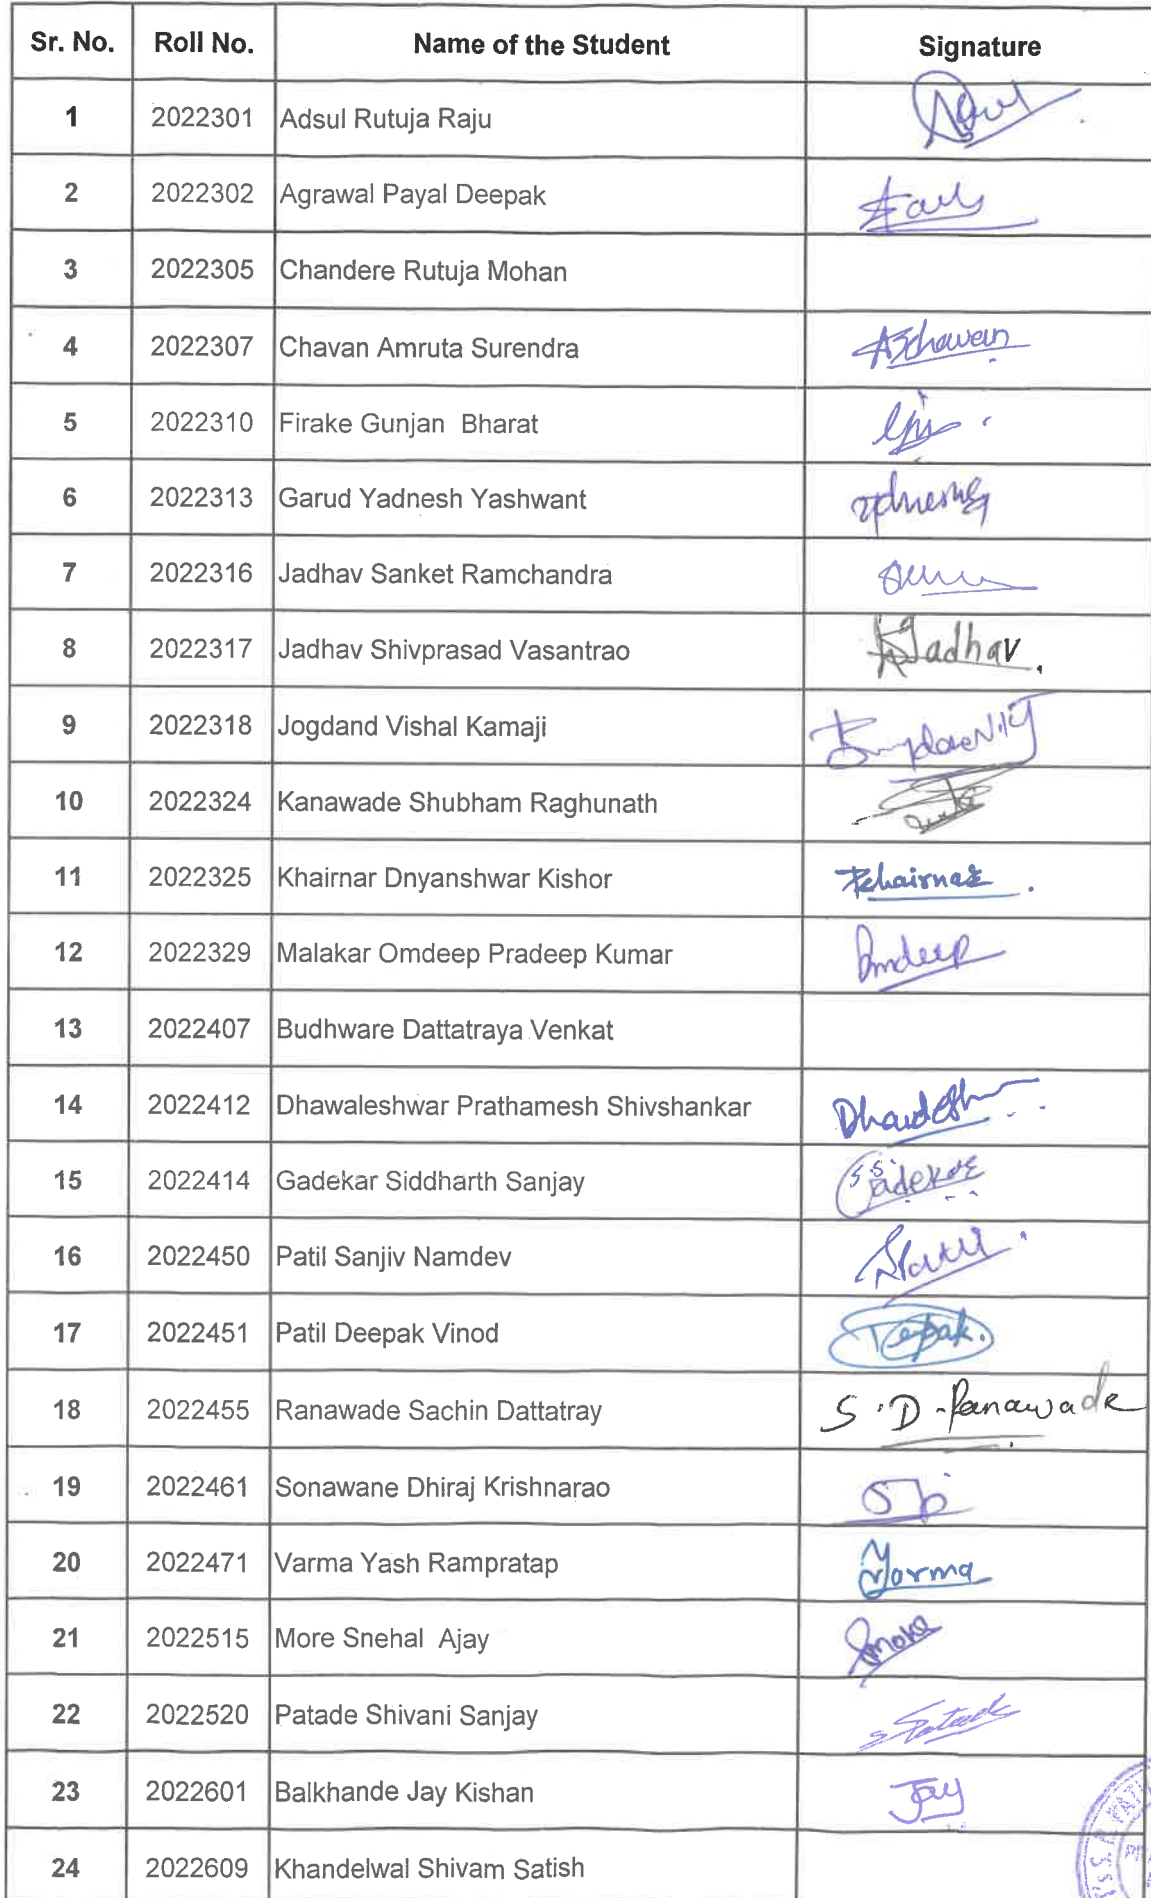 Sr. No. Roll No. Name of the Student Signature
1 2022301 Adsul Rutuja Raju
2 2022302 Agrawal Payal Deepak
3 2022305 Chandere Rutuja Mohan
4 2022307 Chavan Amruta Surendra
5 2022310 Firake Gunjan Bharat
6 2022313 Garud Yadnesh Yashwant
7 2022316 Jadhav Sanket Ramchandra
8 2022317 Jadhav Shivprasad Vasantrao Jadhav
9 2022318 Jogdand Vishal Kamaji
10 2022324 Kanawade Shubham Raghunath
11 2022325 Khairnar Dnyanshwar Kishor Khairnar
12 2022329 Malakar Omdeep Pradeep Kumar Omdeep
13 2022407 Budhware Dattatraya Venkat
14 2022412 Dhawaleshwar Prathamesh Shivshankar
15 2022414 Gadekar Siddharth Sanjay Gadekar
16 2022450 Patil Sanjiv Namdev
17 2022451 Patil Deepak Vinod Deepak.
18 2022455 Ranawade Sachin Dattatray S.D.Ranawade
19 2022461 Sonawane Dhiraj Krishnarao
20 2022471 Varma Yash Rampratap
21 2022515 More Snehal Ajay
22 2022520 Patade Shivani Sanjay
23 2022601 Balkhande Jay Kishan Jay
24 2022609 Khandelwal Shivam Satish